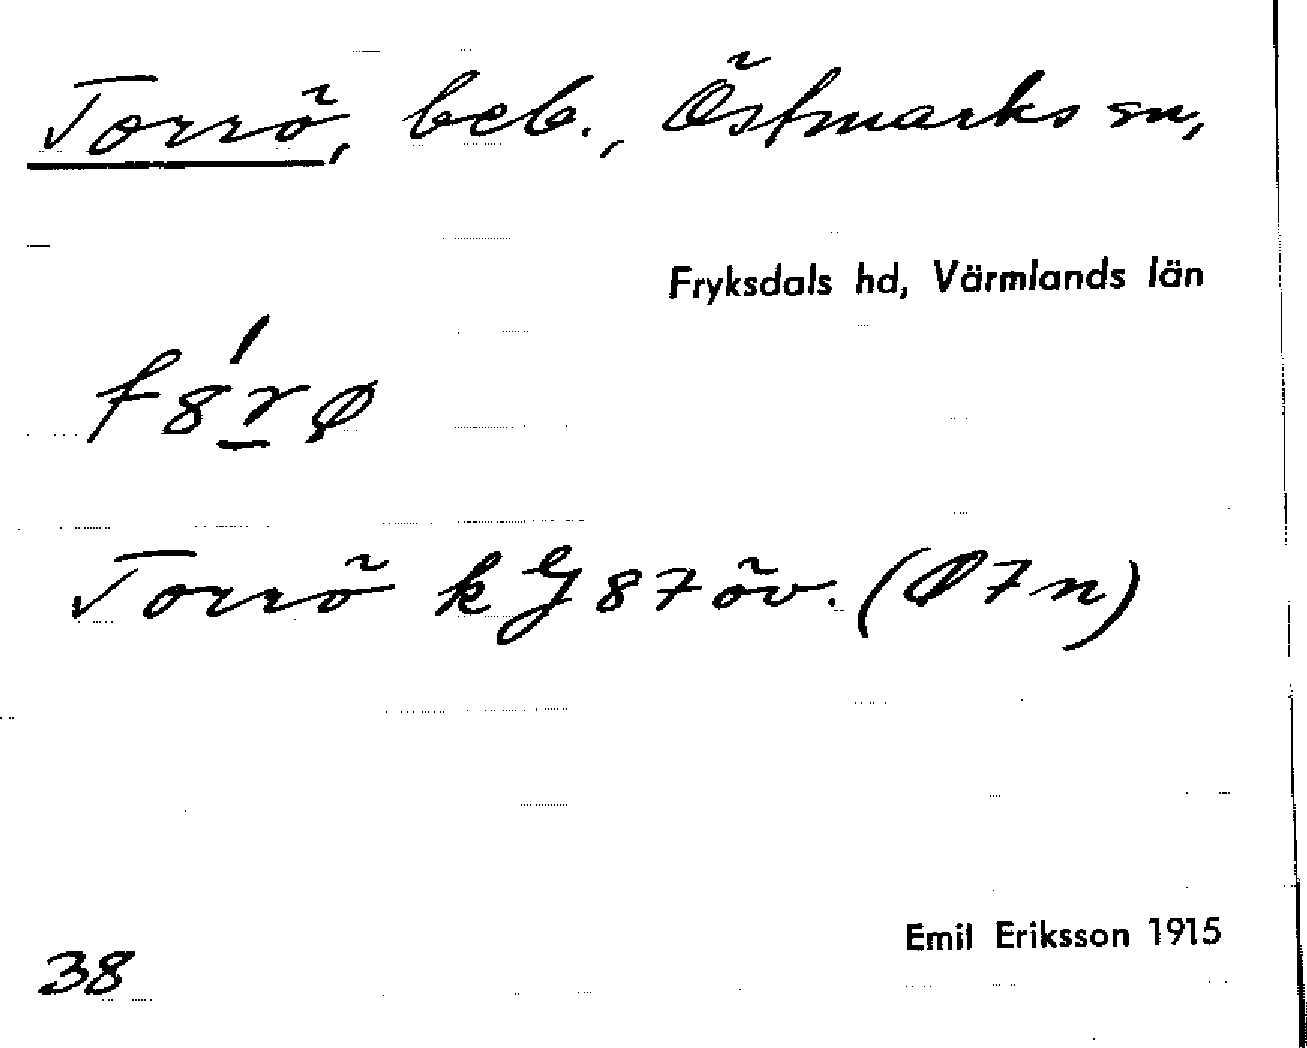 Torrö, beb., Östmarks sn,
Fryksdals hd, Värmlands län
Torrö k GJ 87 öv. (Ø7n)
Emil Eriksson 1915
38